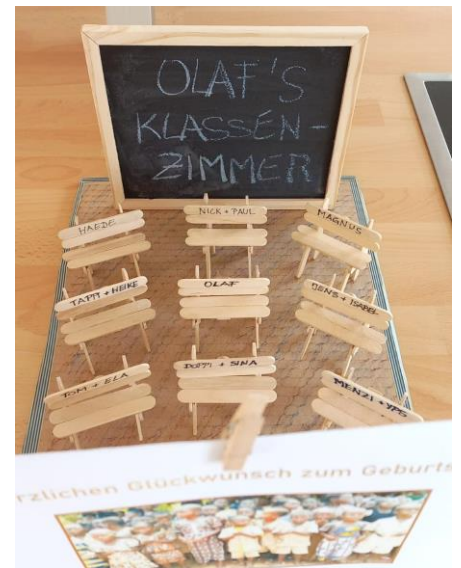 OLAF'S
KLASSEN-
ZIMMER
HAEDE
NICK + PAUL
MAGNUS
TAPPI + HEIKE
OLAF
JENS + ISABEL
TOM + ELA
+ SINA
MENZI + YPS
rzlichen Glückwunsch zum Geburts